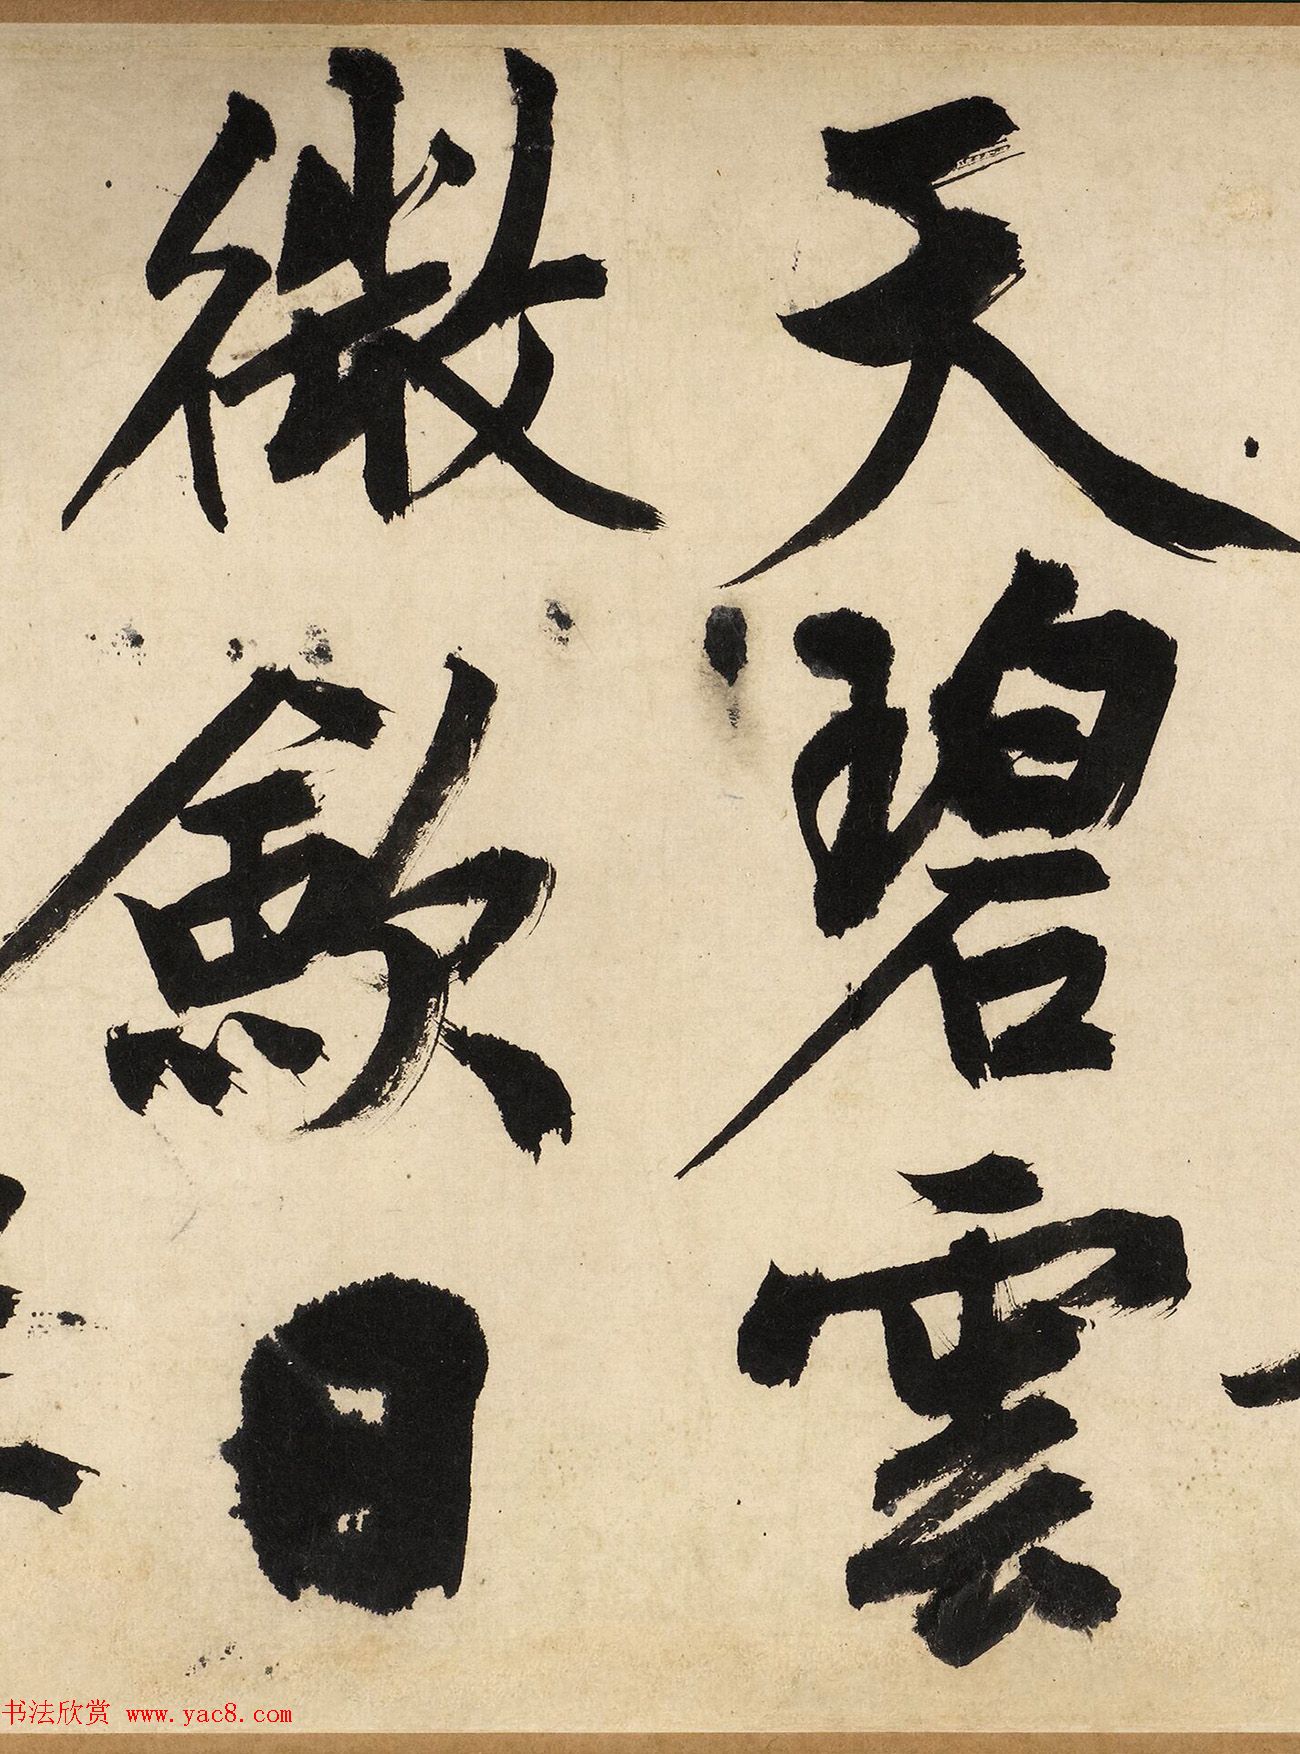 天碧雲
微斂日
书法欣赏 www.yac8.com